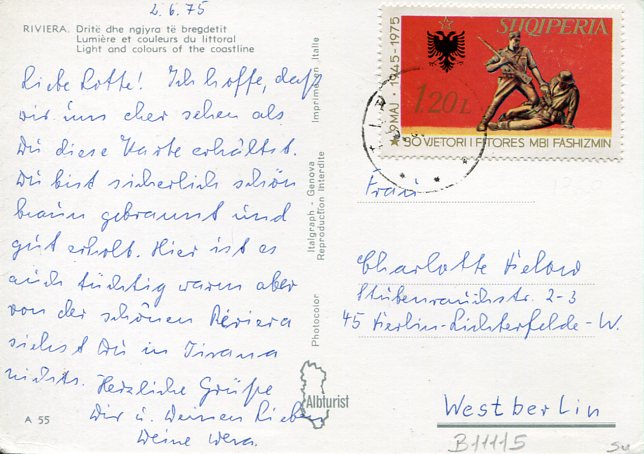 2.6.75
RIVIERA. Dritë dhe ngjyra të bregdetit
Lumière et couleurs du littoral
Light and colours of the coastline
Liebe Lotte! Ich hoffe, daß
wir uns eher sehen als
Du diese Karte erhältst.
Du bist sicherlich schön
braun gebrannt und
gut erholt. Hier ist es
auch tüchtig warm aber
von der schönen Riviera
siehst Du in Tirana
nichts. Herzliche Grüße
Dir u. Deinen Lieben
Deine Vera.
A 55
Photocolor
Italgraph - Genova
Reproduction Interdite
Imprimé en Italie
Albturist
SHQIPERIA
9 MAJ 1945-1975
1.20 L
30 VJETORI I FITORES MBI FASHIZMIN
Frau
Charlotte
Stubenrauchstr. 2-3
45 Berlin-Lichterfelde-W.
Westberlin
B11115